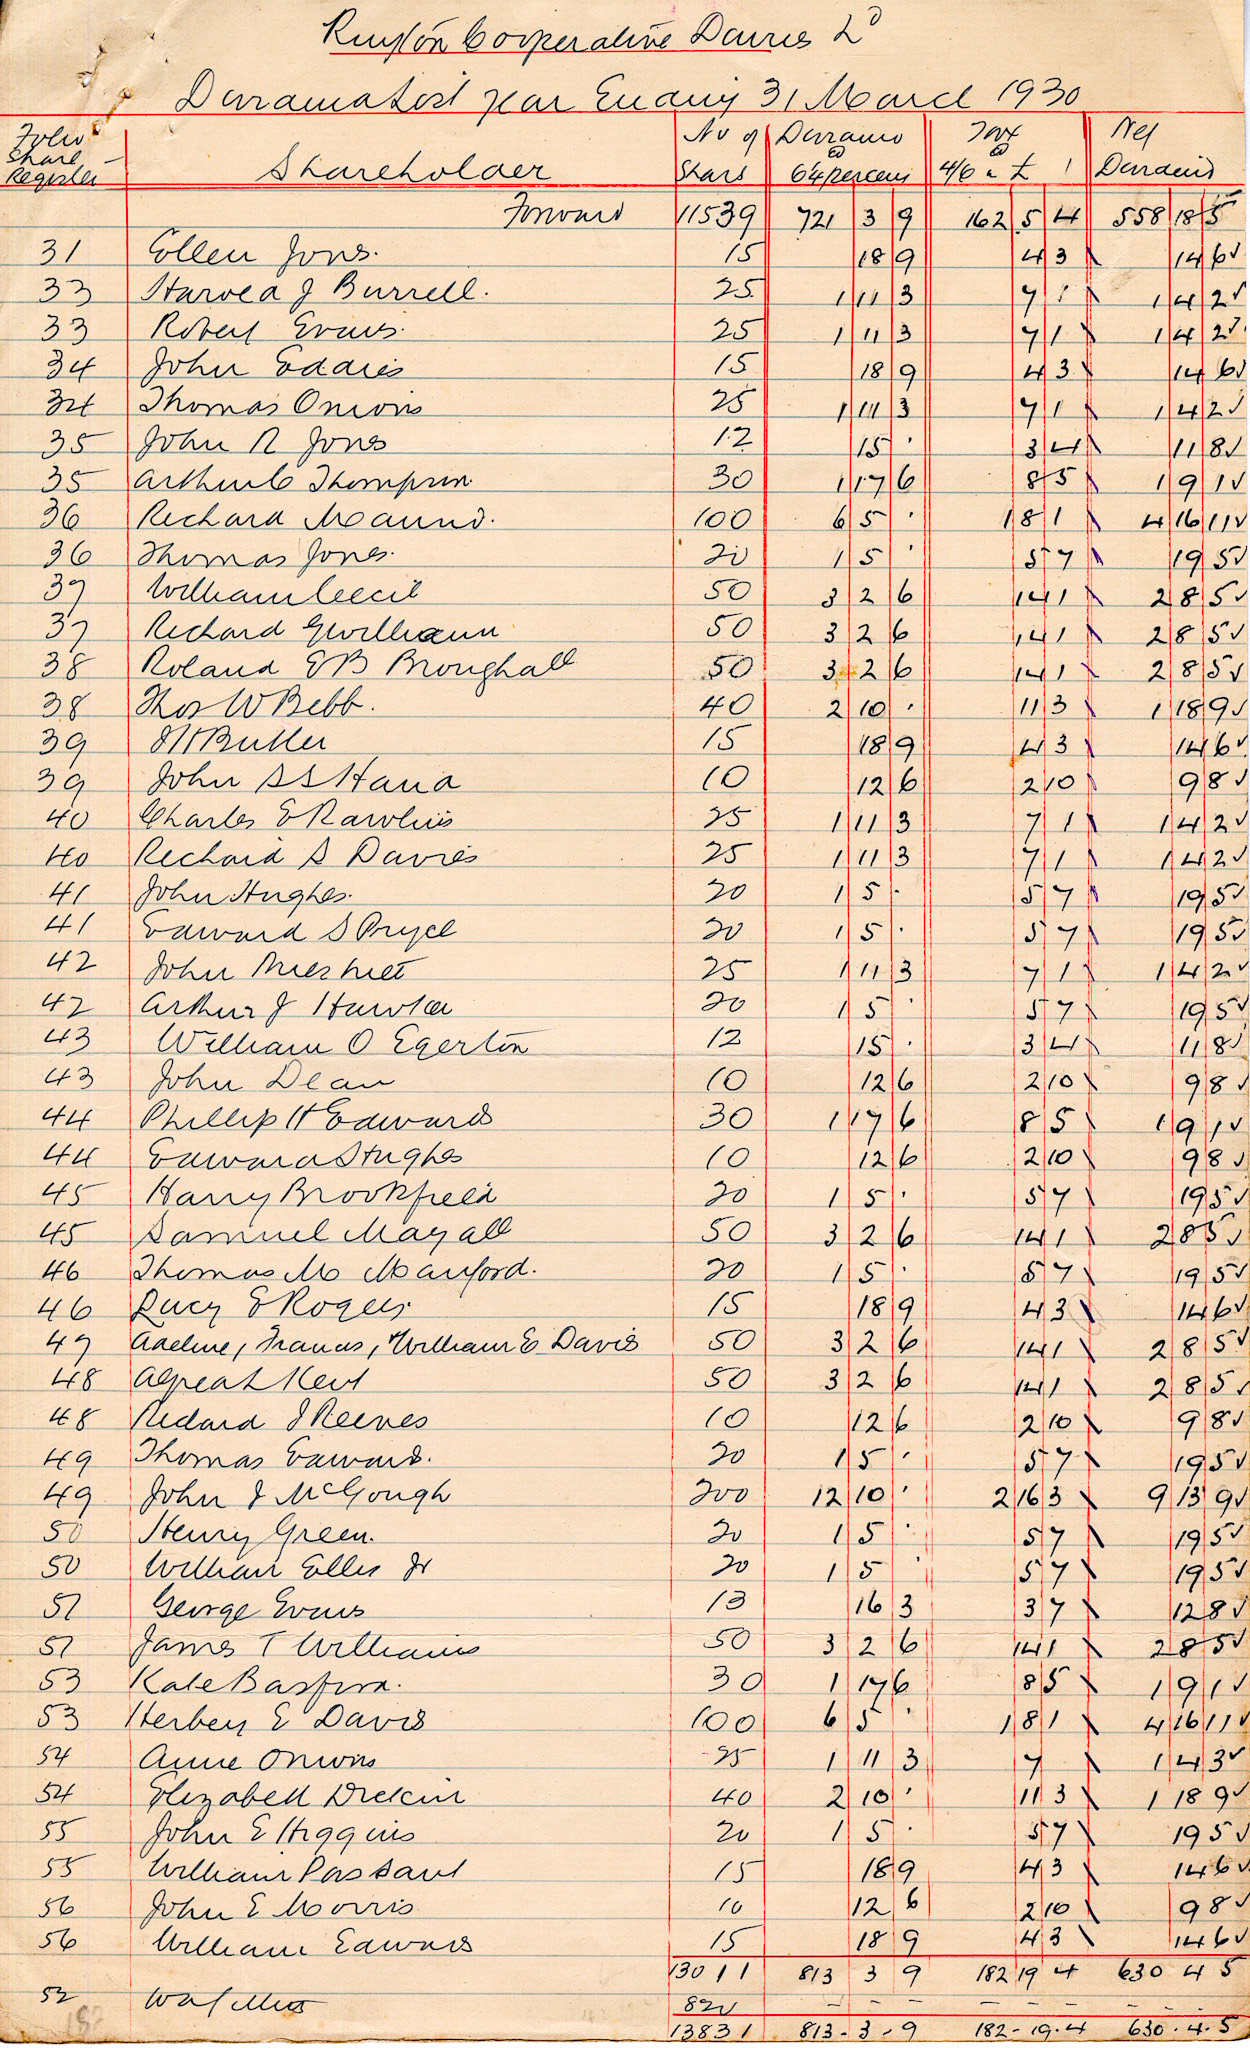 Ruyton Cooperative Dairies Ld
Dividend List year Ending 31 March 1930
Folio Share Register Shareholder No of Shares Dividend @ 6¼ percent Tax @ 4/6 in £ Net Dividend
Forward 11539 721 3 9 162 5 4 558 18 5
31 Ellen Jones. 15 18 9 4 3 14 6
33 Harold J Burrell. 25 1 11 3 7 1 1 4 2
33 Robert Evans. 25 1 11 3 7 1 1 4 2
34 John Eddies 15 18 9 4 3 14 6
34 Thomas Onions 25 1 11 3 7 1 1 4 2
35 John R Jones 12 15 · 3 4 11 8
35 Arthur C Thompson 30 1 17 6 8 5 1 9 1
36 Richard Maund. 100 6 5 · 1 8 1 4 16 11
36 Thomas Jones. 20 1 5 · 5 7 19 5
37 William Cecil 50 3 2 6 14 1 2 8 5
37 Richard Gwilliam 50 3 2 6 14 1 2 8 5
38 Roland E B Broughall 50 3 2 6 14 1 2 8 5
38 Thos W Bebb. 40 2 10 · 11 3 1 18 9
39 Butler 15 18 9 4 3 14 6
39 John S S Hand 10 12 6 2 10 9 8
40 Charles E Rawlins 25 1 11 3 7 1 1 4 2
40 Richard S Davies 25 1 11 3 7 1 1 4 2
41 John Hughes. 20 1 5 · 5 7 19 5
41 Edward S Pryce 20 1 5 · 5 7 19 5
42 John 25 1 11 3 7 1 1 4 2
42 Arthur J 20 1 5 · 5 7 19 5
43 William O Egerton 12 15 · 3 4 11 8
43 John Dean 10 12 6 2 10 9 8
44 Phillip H Edwards 30 1 17 6 8 5 1 9 1
44 Edward Hughes 10 12 6 2 10 9 8
45 Harry Brookfield 20 1 5 · 5 7 19 5
45 Samuel Mayall 50 3 2 6 14 1 2 8 5
46 Thomas M Manford. 20 1 5 · 5 7 19 5
46 Lucy E Rogers 15 18 9 4 3 14 6
47 Adeline, Francis, William E Davis 50 3 2 6 14 1 2 8 5
48 Alfred Kent 50 3 2 6 14 1 2 8 5
48 Richard J Reeves 10 12 6 2 10 9 8
49 Thomas Edwards. 20 1 5 · 5 7 19 5
49 John J McGough 200 12 10 · 2 16 3 9 13 9
50 Henry Green. 20 1 5 · 5 7 19 5
50 William Ellis Jr 20 1 5 5 7 19 5
51 George Evans 13 16 3 3 7 12 8
51 James T Williams 50 3 2 6 14 1 2 8 5
53 Kate Basford. 30 1 17 6 8 5 1 9 1
53 Herbert E Davis 100 6 5 · 1 8 1 4 16 11
54 Annie Onions 25 1 11 3 7 1 4 3
54 Elizabeth Dickin 40 2 10 · 11 3 1 18 9
55 John E Higgins 20 1 5 · 5 7 19 5
55 William Passant 15 18 9 4 3 14 6
56 John E Morris 10 12 6 2 10 9 8
56 William Edwards 15 18 9 4 3 14 6
13011 813 3 9 182 19 4 630 4 5
52 820 – – – – – – – – –
13831 813 - 3 - 9 182 - 19 - 4 630 . 4 . 5